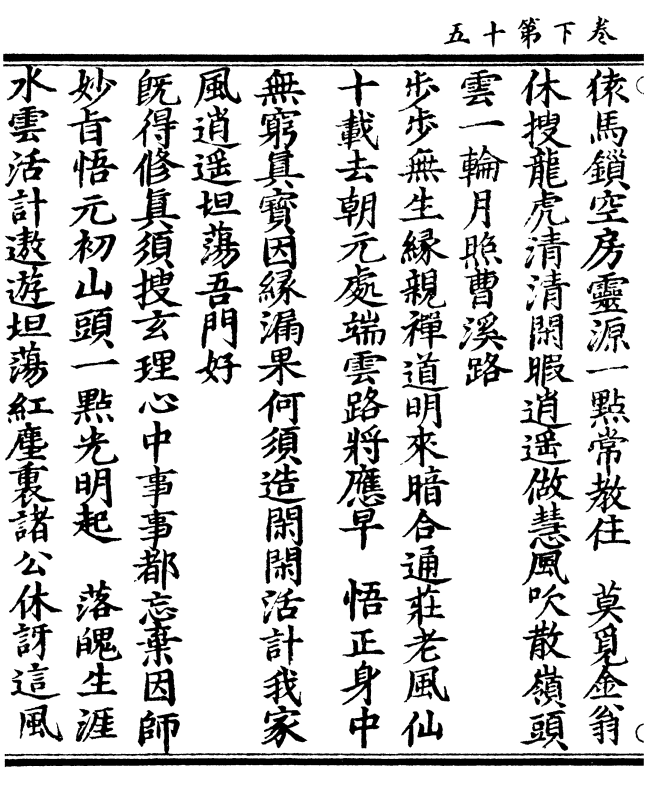 卷下第十五
猿馬鎖空房靈源一點常教住　莫覓金翁
休搜龍虎清清閑暇逍遥做慧風吹散嶺頭
雲一輪月照曹溪路
步步無生緣親禪道明來暗合通莊老風仙
十載去朝元處端雲路將應早　悟正身中
無窮眞寳因緣漏果何須造閑閑活計我家
風逍遥坦蕩吾門好
旣得修眞須搜玄理心中事事都忘棄因師
妙旨悟元初山頭一點光明起　落魄生涯
水雲活計遨遊坦蕩紅塵裏諸公休訝這風